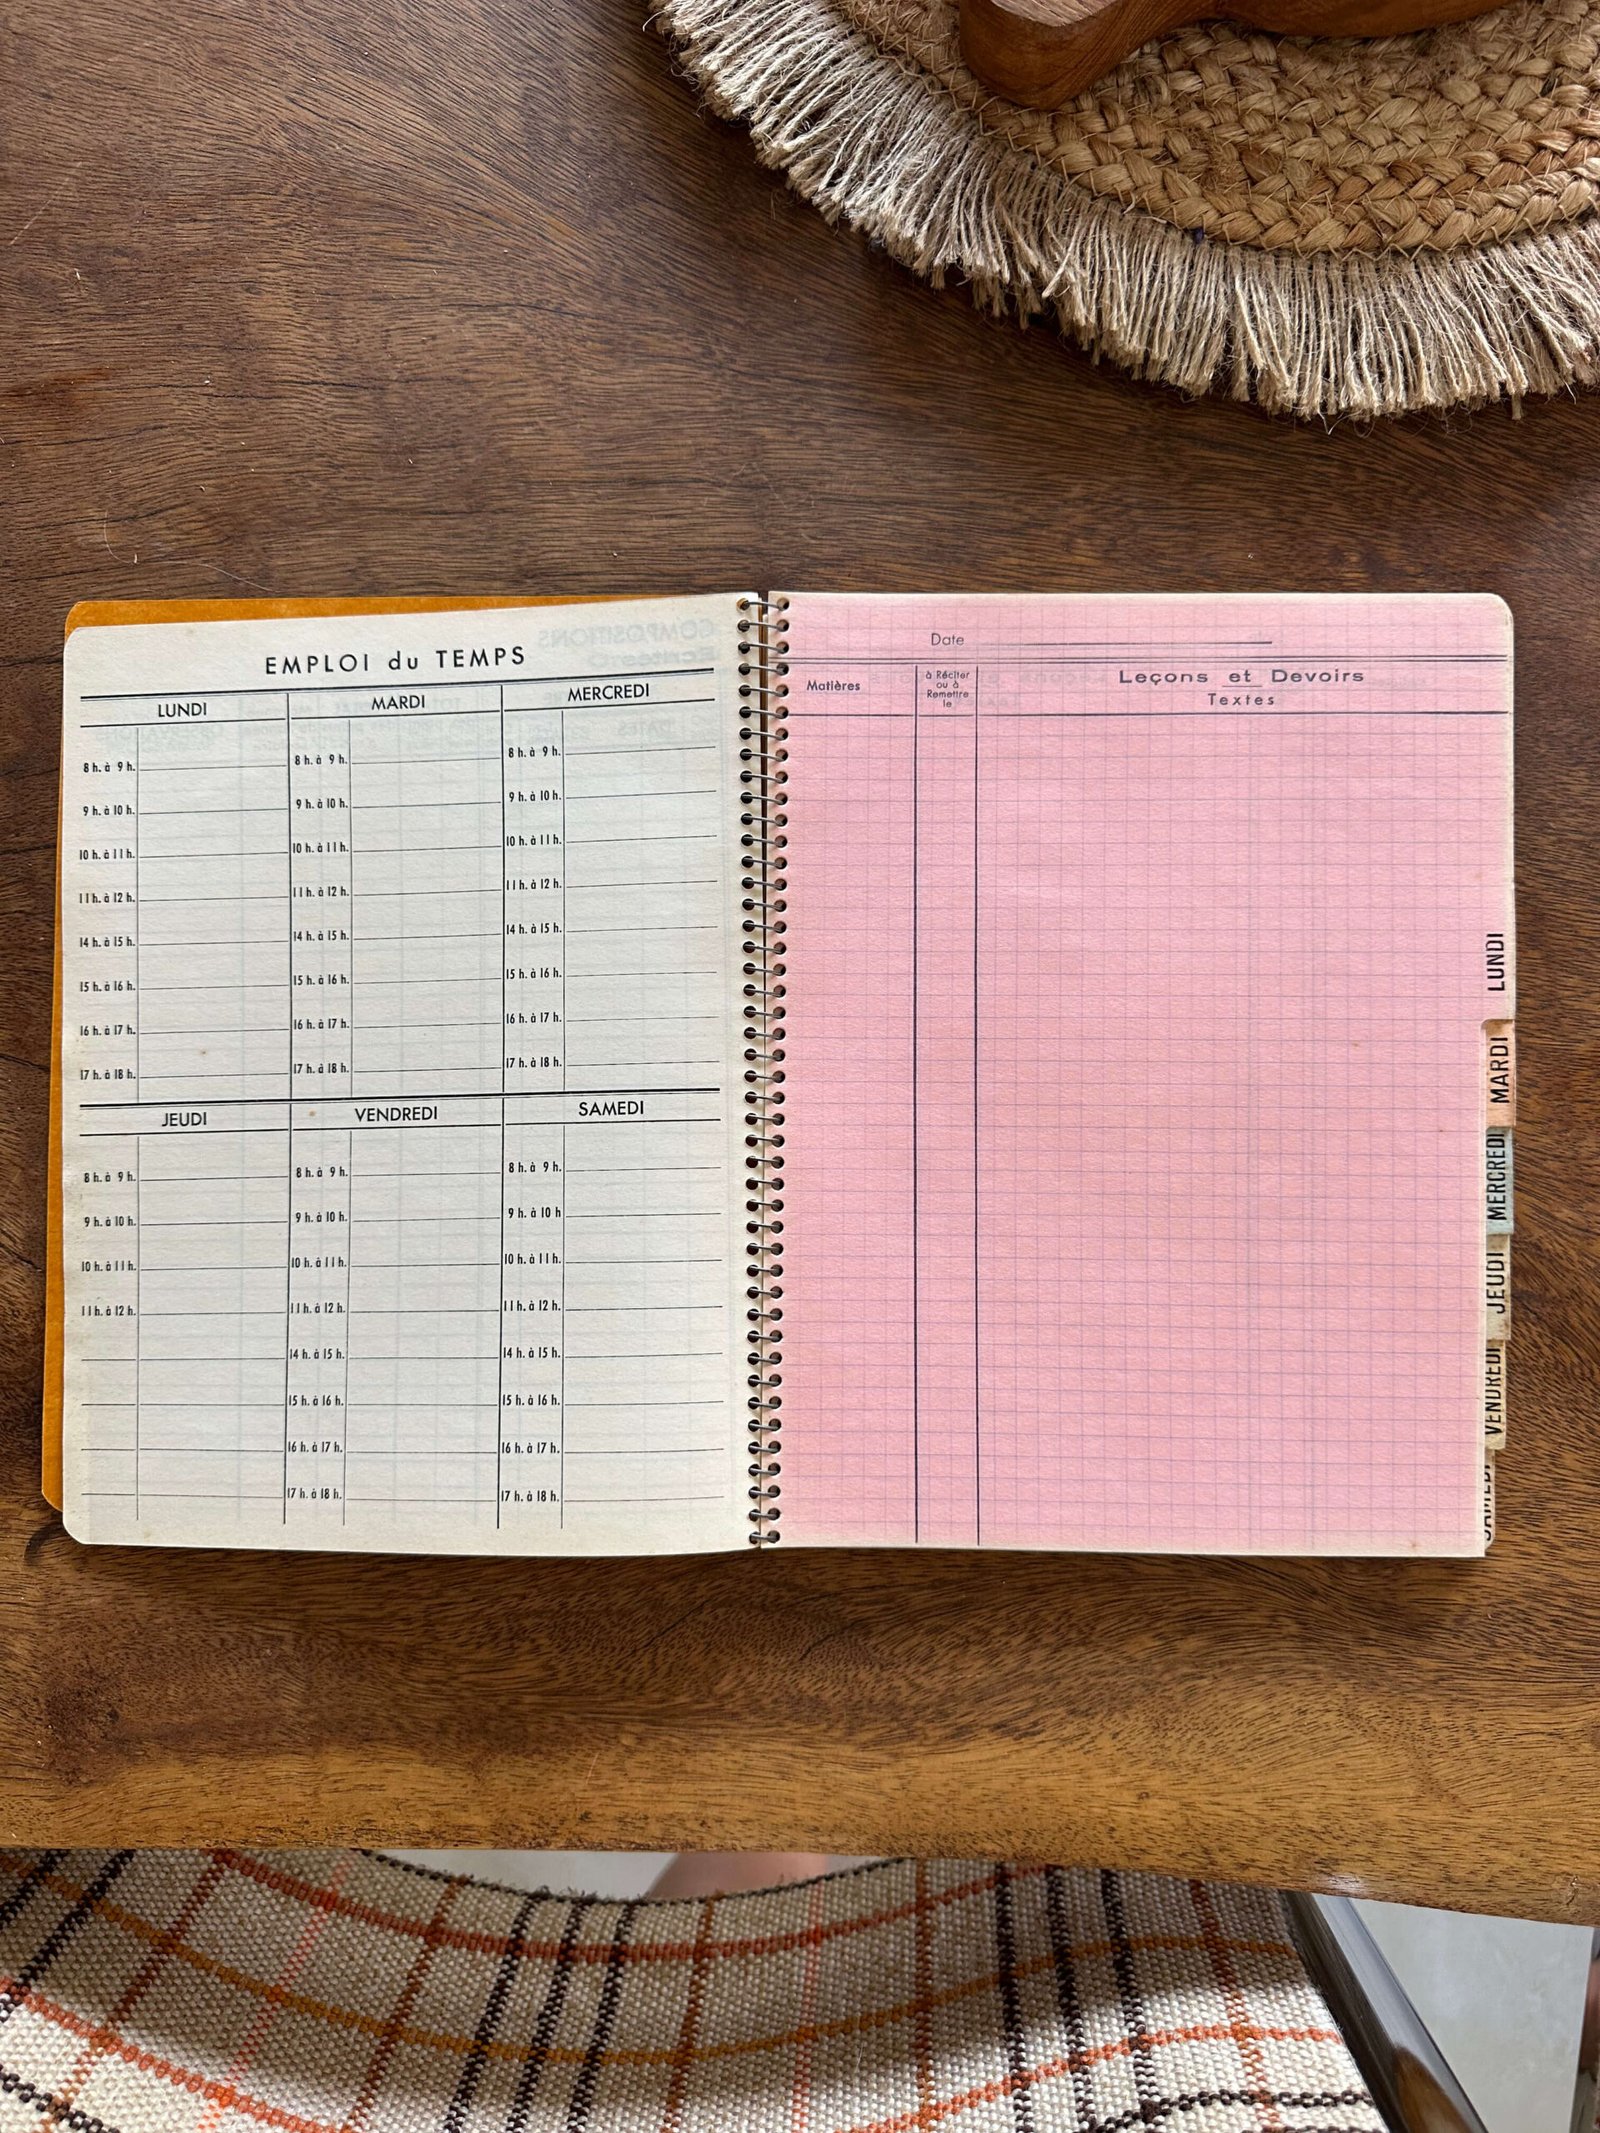 EMPLOI du TEMPS
LUNDI
8 h. à 9 h.
9 h. à 10 h.
10 h. à 11 h.
11 h. à 12 h.
14 h. à 15 h.
15 h. à 16 h.
16 h. à 17 h.
17 h. à 18 h.
MARDI
8 h. à 9 h.
9 h. à 10 h.
10 h. à 11 h.
11 h. à 12 h.
14 h. à 15 h.
15 h. à 16 h.
16 h. à 17 h.
17 h. à 18 h.
MERCREDI
8 h. à 9 h.
9 h. à 10 h.
10 h. à 11 h.
11 h. à 12 h.
14 h. à 15 h.
15 h. à 16 h.
16 h. à 17 h.
17 h. à 18 h.
JEUDI
8 h. à 9 h.
9 h. à 10 h.
10 h. à 11 h.
11 h. à 12 h.
VENDREDI
8 h. à 9 h.
9 h. à 10 h.
10 h. à 11 h.
11 h. à 12 h.
14 h. à 15 h.
15 h. à 16 h.
16 h. à 17 h.
17 h. à 18 h.
SAMEDI
8 h. à 9 h.
9 h. à 10 h
10 h. à 11 h.
11 h. à 12 h.
14 h. à 15 h.
15 h. à 16 h.
16 h. à 17 h.
17 h. à 18 h.
Date
Matières
à Réciter
ou à
Remettre
le
Leçons et Devoirs
Textes
LUNDI
MARDI
MERCREDI
JEUDI
VENDREDI
SAMEDI